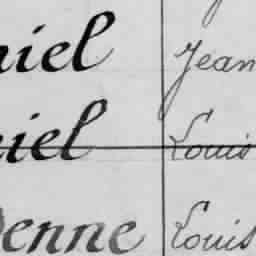 niel Jean
niel Louis
enne Louis